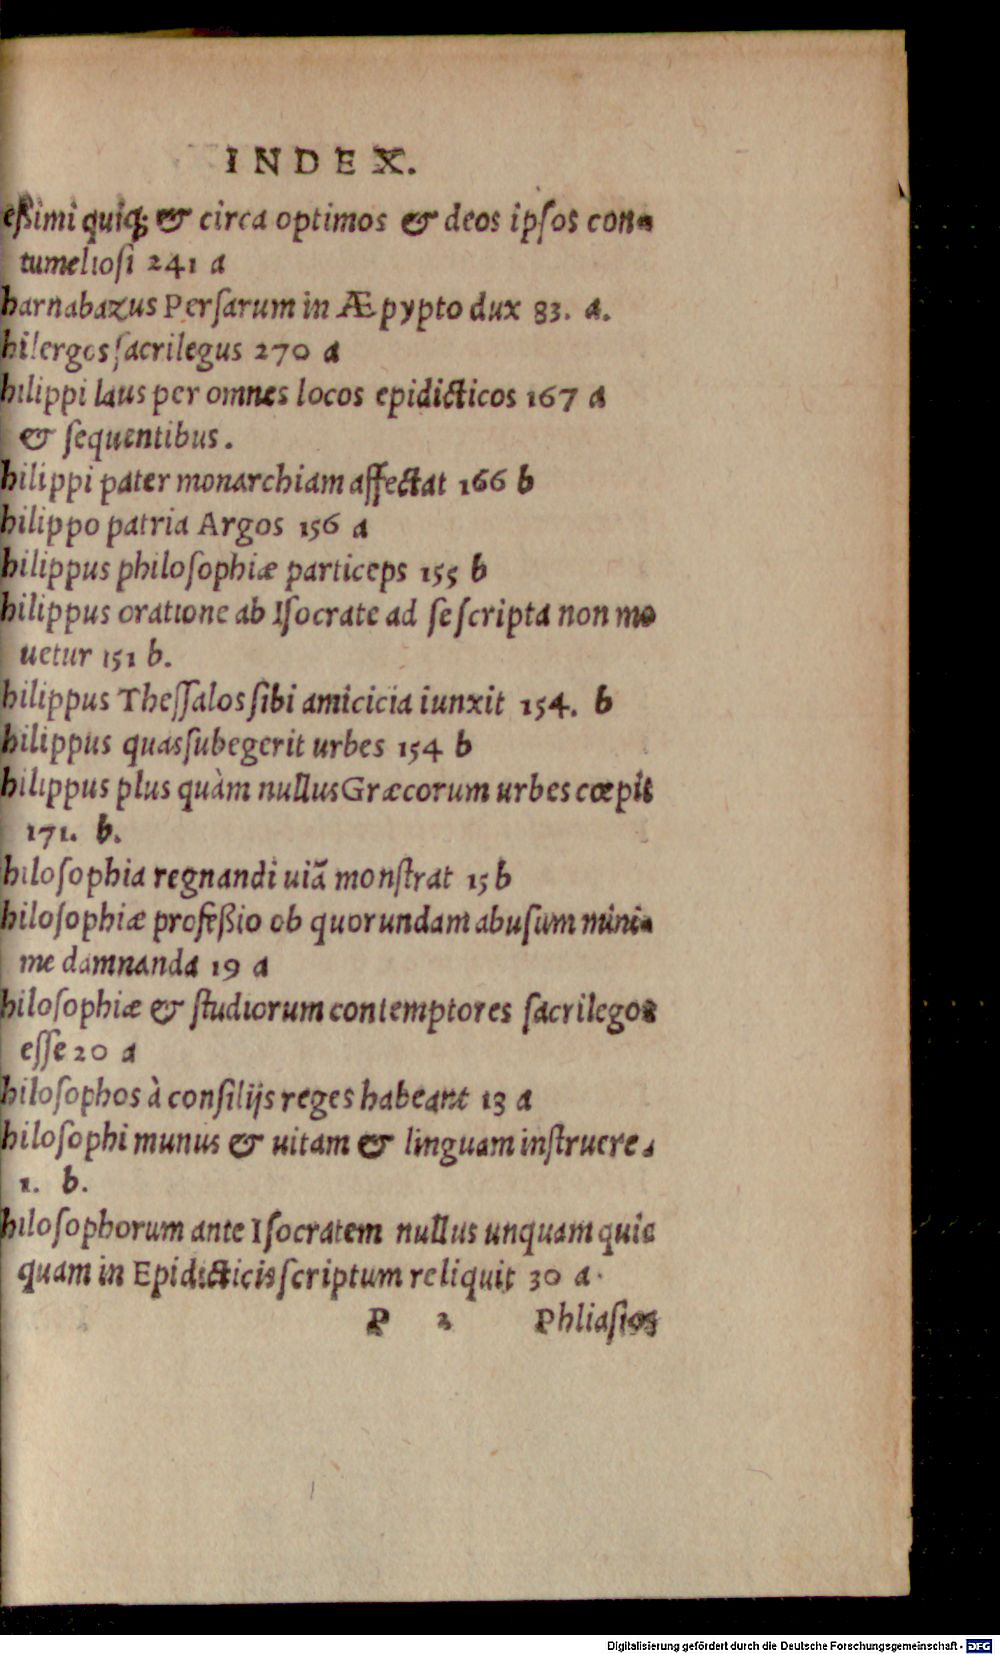 INDEX.
eßimi quiq; & circa optimos & deos ipſos con-
tumelioſi 241 a
harnabazus Perſarum in Æpypto dux 83. a.
hilergos ſacrilegus 270 a
hilippi laus per omnes locos epidicticos 167 a
& ſequentibus.
hilippi pater monarchiam affectat 166 b
hilippo patria Argos 156 a
hilippus philoſophiæ particeps 155 b
hilippus oratione ab Iſocrate ad ſe ſcripta non mo
uetur 151 b.
hilippus Theſſalos ſibi amicicia iunxit 154. b
hilippus quas ſubegerit urbes 154 b
hilippus plus quàm nullus Græcorum urbes cœpit
171. b.
hiloſophia regnandi uiã monſtrat 15 b
hiloſophiæ profeßio ob quorundam abuſum mini-
me damnanda 19 a
hiloſophiæ & ſtudiorum contemptores ſacrilegos
eſſe 20 a
hiloſophos à conſilijs reges habeant 13 a
hiloſophi munus & uitam & linguam inſtruere.
1. b.
hiloſophorum ante Iſocratem nullus unquam quic
quam in Epidicticis ſcriptum reliquit 30 a.
P 2 Phliaſios
Digitalisierung gefördert durch die Deutsche Forschungsgemeinschaft - DFG